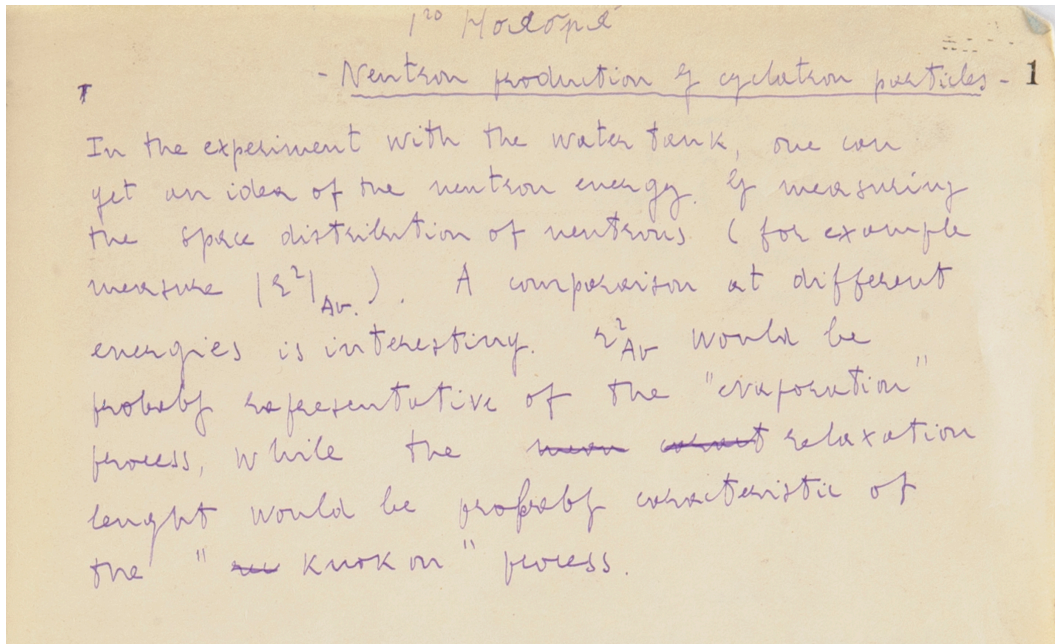 1го Ноября
- Neutron production by cyclotron particles - 1
In the experiment with the water tank, one can
get an idea of the neutron energy by measuring
the space distribution of neutrons. (for example
measure |r²|Av.). A comparaison at different
energies is interesting. r²Av would be
probably representative of the "evaporation"
process, while the relaxation
lenght would be probably caracteristic of
the " knok on" process.